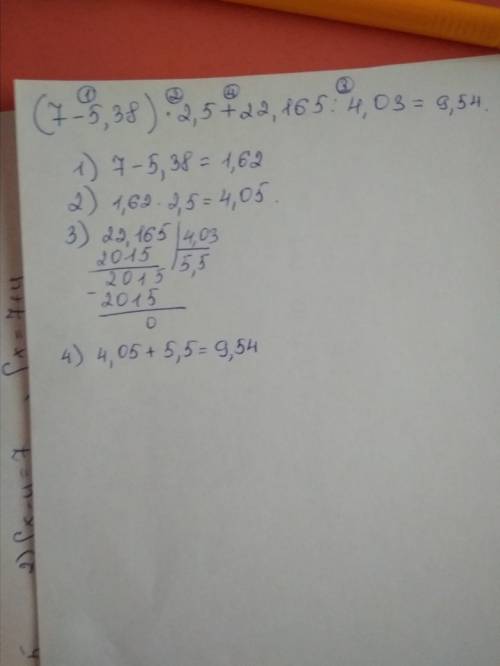 ① ② ④ ③
(7-5,38)·2,5+22,165:4,03=9,54.
1) 7-5,38=1,62
2) 1,62·2,5=4,05.
3) 22,165 4,03
2015 5,5
2015
-2015
0
4) 4,05+5,5=9,54